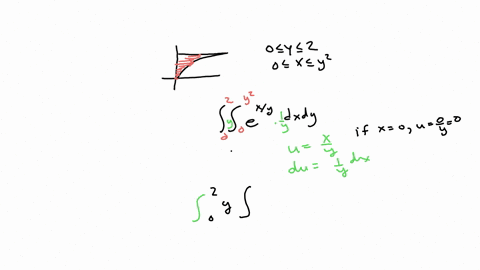 0 ≤ y ≤ 2
0 ≤ x ≤ y²
∫₀² y ∫₀^{y²} e^{x/y} · 1/y dx dy
if x = 0, u = 0/y = 0
u = x/y
du = 1/y dx
∫₀² y ∫